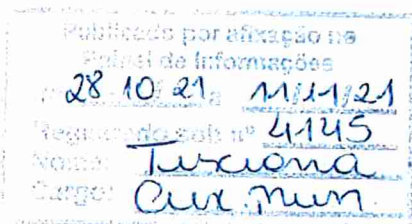 Publicado por afixação no
Painel de Informações
28 10 21 a 11/11/21
Registrado sob nº 4145
Nome: Tusciana
Cargo: Aux. mun.